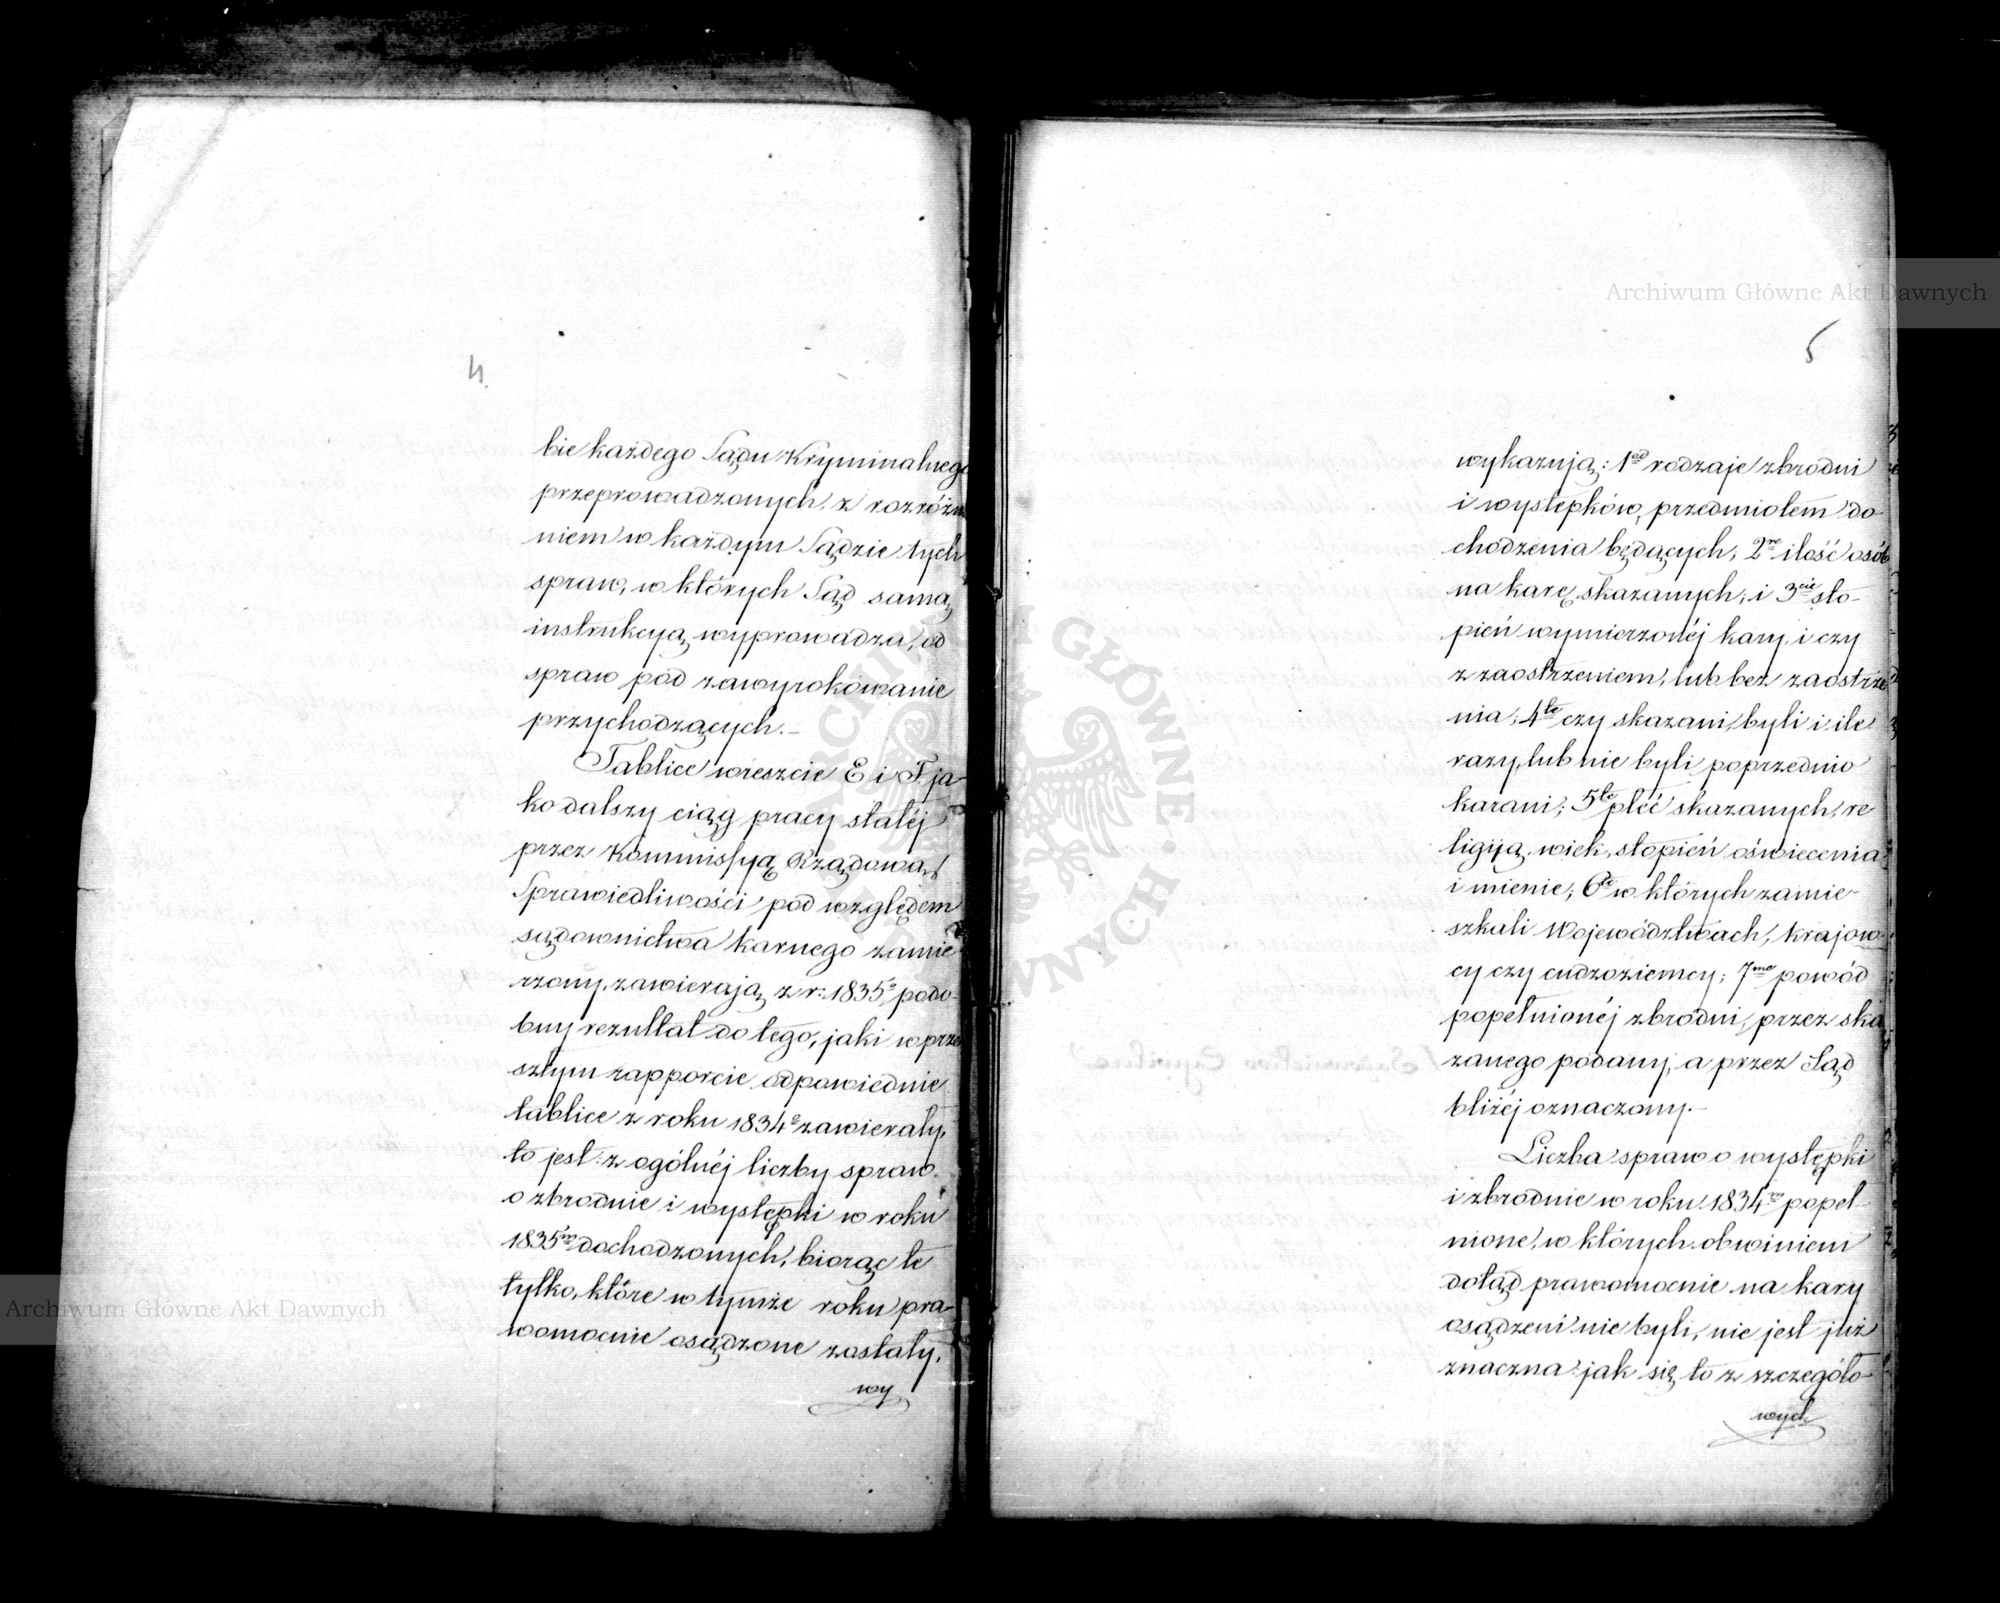 4.
bie każdego Sądu Kryminalnego
przeprowadzonych, z rozróżnie
niem w każdym Sądzie tych
spraw, w których Sąd samą
instrukcyą wyprowadza, od
spraw pod zawyrokowanie
przychodzących.—
Tablice wreszcie E i F ja
ko dalszy ciąg pracy stałéj
przez Kommissyą Rządową
Sprawiedliwości pod względem
sądownictwa karnego zamie
rzony, zawierają z r: 1835º podo
bny rezultat do tego, jaki w prze
szłym rapporcie odpowiednie
tablice z roku 1834º zawierały,
to jest: z ogólnéj liczby spraw
o zbrodnie i występki w roku
1835ym dochodzonych, biorąc te
tylko, które w tymże roku pra-
womocnie osądzone zostały,
wy
5
wykazują: 1od rodzaje zbrodni
i występków, przedmiotem do-
chodzenia będących; 2re ilość osób
na karę skazanych; i 3cie sto-
pień wymierzonéj kary, i czy
z zaostrzeniem, lub bez zaostrze
nia; 4te czy skazani, byli i ile
razy, lub nie byli poprzednio
karani; 5te płeć skazanych, re
ligiją, wiek, stopień oświecenia
i mienie; 6te w których zamie-
szkali Województwach, krajow-
cy czy cudzoziemcy; 7me powód
popełnionéj zbrodni, przez ska
zanego podany, a przez Sąd
bliżéj oznaczony.—
Liczba spraw o występki
i zbrodnie w roku 1834ym popeł-
nione, w których obwinieni
dotąd prawomocnie na kary
osądzeni nie byli, nie jest już
znaczna: jak się to z szczegóło-
wych
Archiwum Główne Akt Dawnych
Archiwum Główne Akt Dawnych